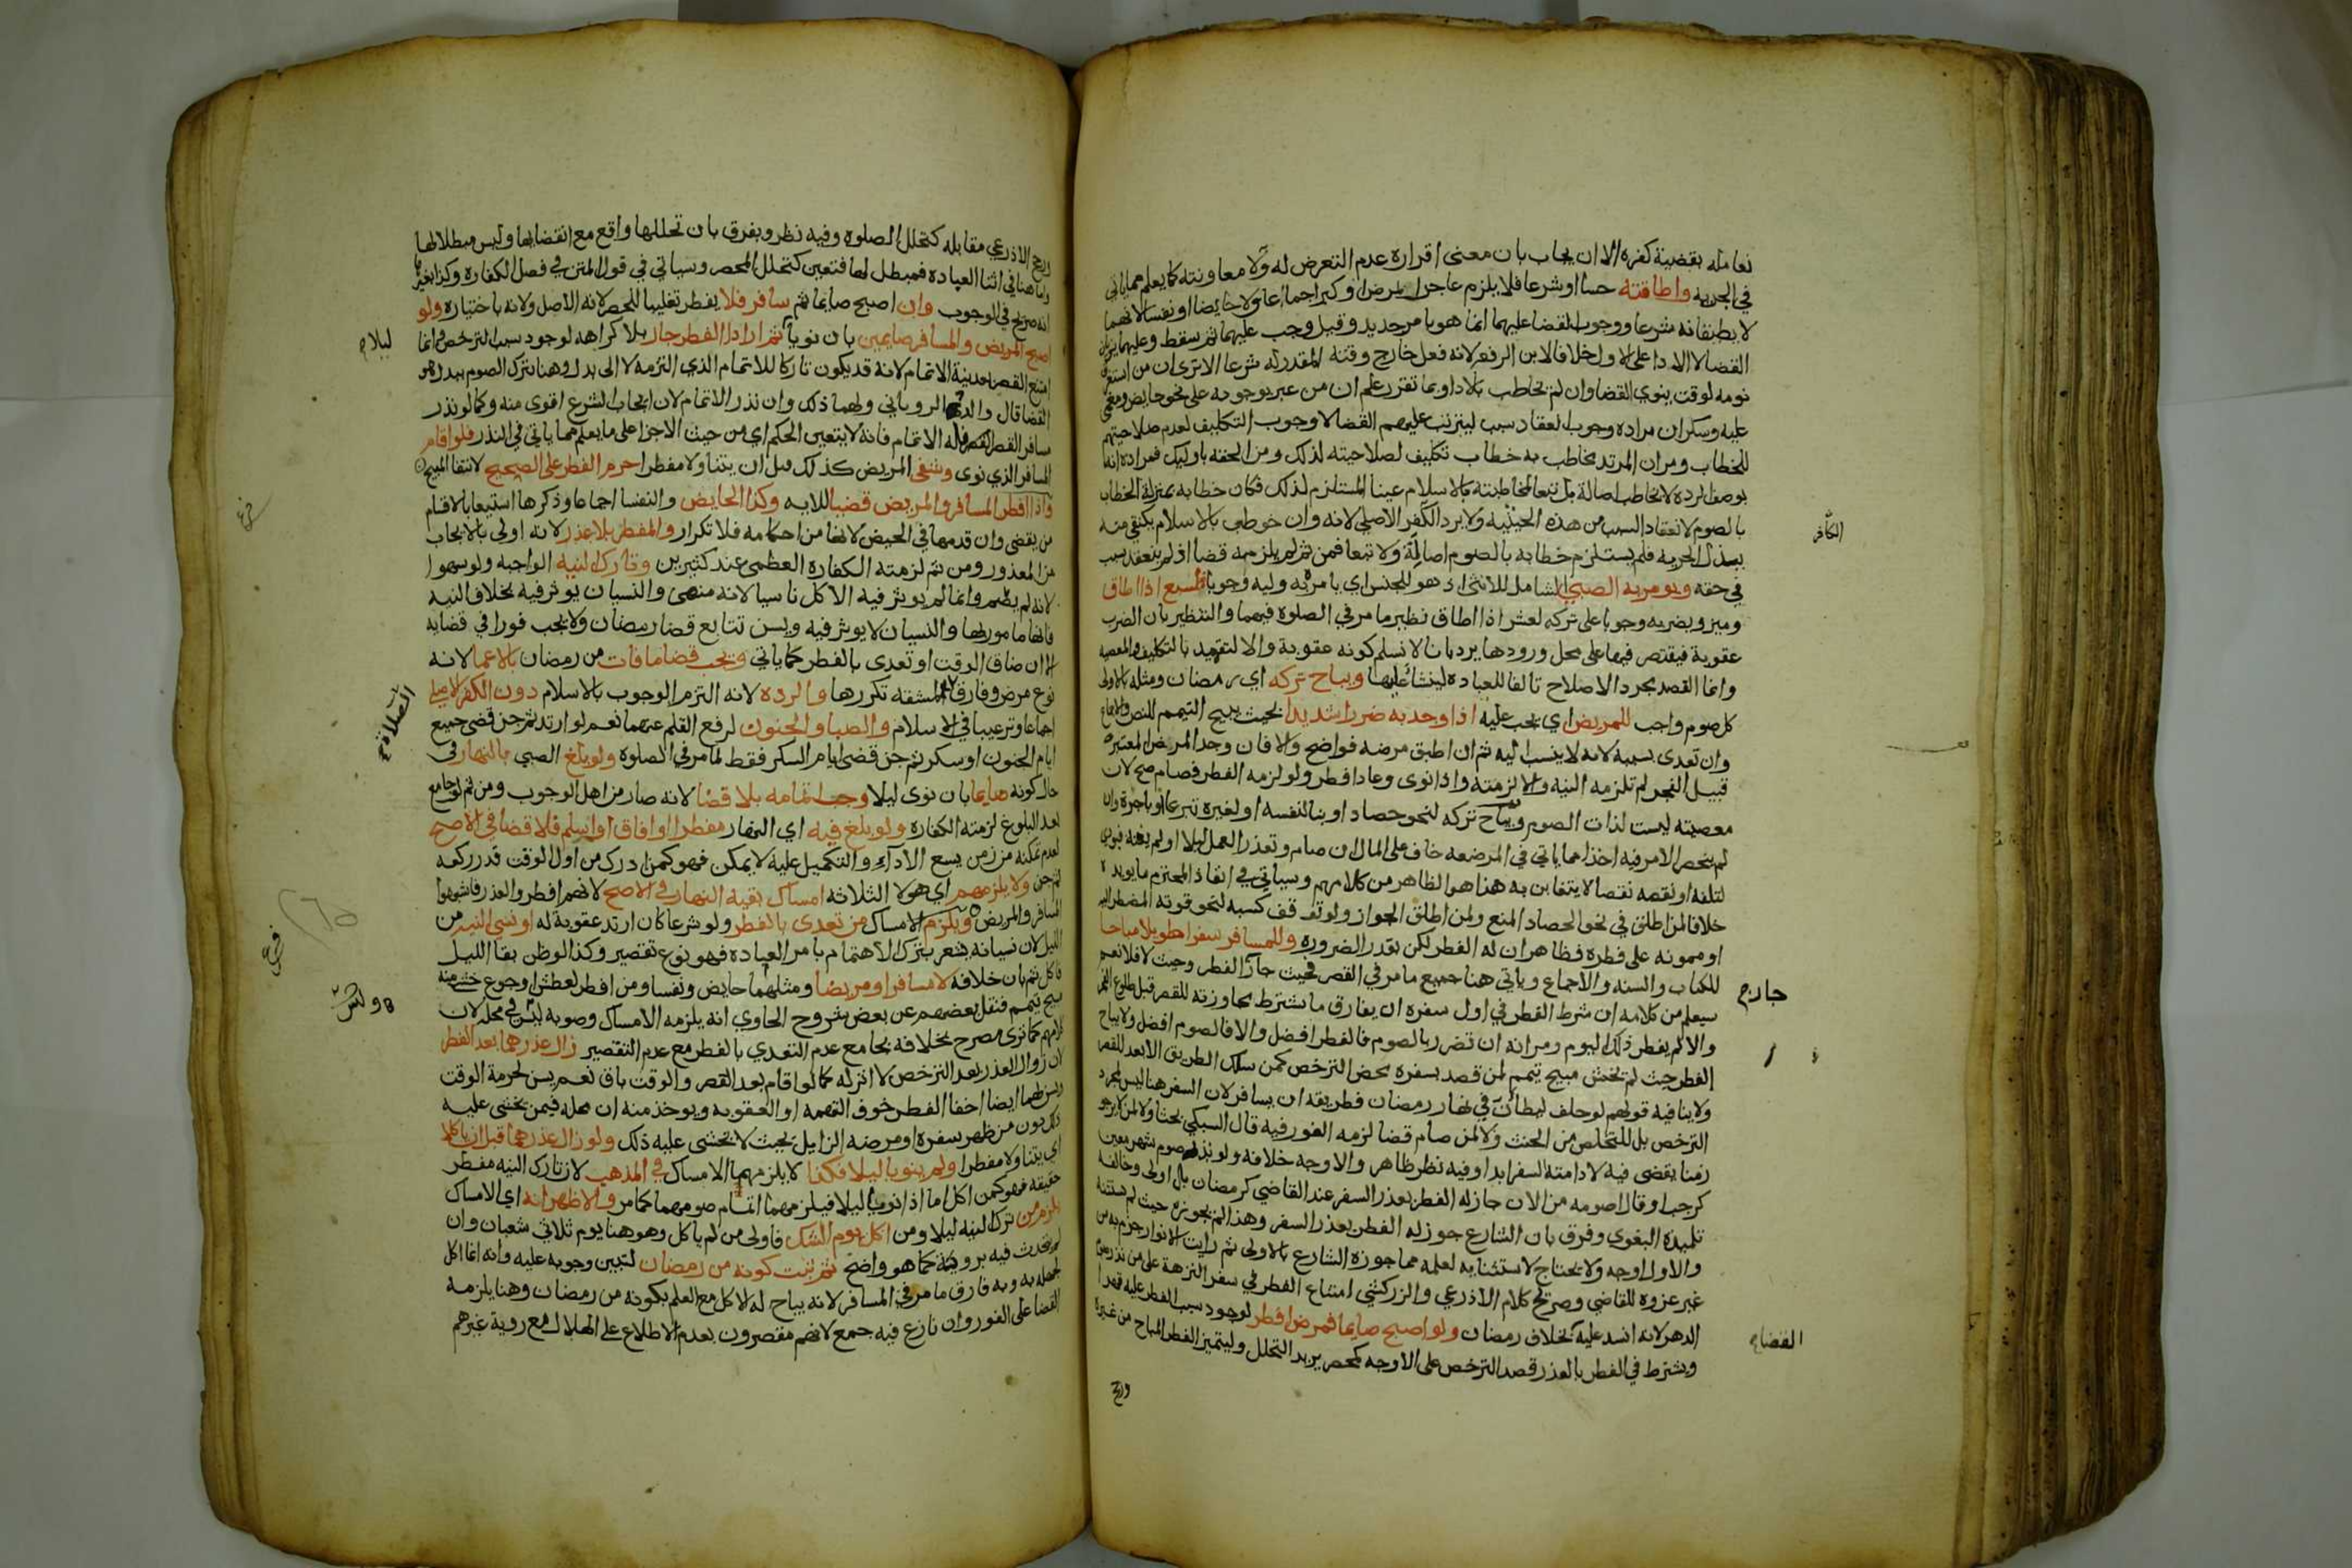 نعامله بقضية كفره الا ان يجاب بان معنى اقراره عدم التعرض له ولا معاونته كما يعلم مما ياتي
في الجزية واطاقته حسا او شرعا فلا يلزم عاجزا لمرض او كبر اجماعا ولا حايضا او نفسا لانهما
لا يطيقانه شرعا ووجوب القضا عليهما انما هو بامر جديد وقيل وجب عليهما ثم سقط وعليهما ينويان
القضا لا الادا على الاول خلافا لابن الرفعه لانه فعل خارج وقته المقدر له شرعا الا ترى ان من استغرق
نومه لوقت ينوي القضا وان لم يخاطب بالادا وبما تقرر علم ان من عبر بوجوبه على نحو حايض ومغمى
عليه وسكران مراده وجوب انعقاد سبب ليترتب عليهم القضا لا وجوب التكليف لعدم صلاحيتهم
للخطاب ومر ان المرتد يخاطب به خطاب تكليف لصلاحيته لذلك ومن الحقه باوليك فمراده انه
بوصف الردة لا يخاطب اصالة بل تبعا لمخاطبته بالاسلام عينا المستلزم لذلك فكان خطابه بمنزلة الخطاب
بالصوم لانعقاد السبب من هذه الحيثيه ولا يرد الكفر الاصلي لانه وان خوطب بالاسلام يكتفى منه
الكافر
ببذل الجزيه فلم يستلزم خطابه بالصوم اصالة ولا تبعا فمن ثم لم يلزمه قضا اذ لم ينعقد سبب
في حقه ويومر به الصبي الشامل للانثى اذ هو للجنس اي يامره به وليه وجوبا لسبع اذا اطاق
وميز ويضربه وجوبا على تركه لعشر اذا اطاق نظير ما مر في الصلوة فيهما والتنظير بان الضرب
عقوبة فيقتصر فيها على محل ورودها يرد بانا لا نسلم كونه عقوبة والا لتقيد بالتكليف والمعصيه
وانما القصد مجرد الاصلاح تالفا للعبادة لينشا عليها ويباح تركه اي رمضان ومثله بالاولى
كل صوم واجب للمريض اي يجب عليه اذا وجد به ضررا شديدا بحيث يبيح التيمم للنص والاجماع
وان تعدى بسببه لانه لا ينسب اليه ثم ان اطبق مرضه فواضح والا فان وجد المرض المعتبر
قبيل الفجر لم تلزمه النية والا لزمته واذا نوى وعاد افطر ولو لزمه الفطر فصام صح لان
معصيته ليست لذات الصوم ويباح تركه لنحو حصاد او بنا لنفسه او لغيره تبرعا او باجرة وان
لم ينحصر الامر فيه اخذا مما ياتي في المرضعه خاف على المال ان صام وتعذر العمل ليلا او لم يغنه فيودي
لتلفه او نقصه نقصا لا يتغابن به هذا هو الظاهر من كلامهم وسياتي في انقاذ المحترم ما يويده
خلافا لمن اطلق في نحو الحصاد المنع ولمن اطلق الجواز ولو توقف كسبه لنحو قوته المضطر اليه
او ممونه على فطره فظاهر ان له الفطر لكن بقدر الضروره وللمسافر سفرا طويلا مباحا
للكتاب والسنه والاجماع وياتي هنا جميع ما مر في القصر فحيث جاز الفطر وحيث لا فلا نعم
جاز م
سيعلم من كلامه ان شرط الفطر في اول سفره ان يفارق ما يشترط مجاوزته للقصر قبل طلوع الفجر
والا لم يفطر ذلك اليوم ومر انه ان تضرر بالصوم فالفطر افضل والا فالصوم افضل ولا يباح
الفطر حيث لم يخش مبيح تيمم لمن قصد بسفره محض الترخص كمن سلك الطريق الابعد للقصر
ولا ينافيه قولهم لو حلف ليطان في نهار رمضان فطريقه ان يسافر لان السفر هنا ليس لمجرد
الترخص بل للتخلص من الحنث ولا لمن صام قضا لزمه الفور فيه قال السبكي بحثا ولا لمن لا يرجو
زمنا يقضي فيه لادامته السفر ابدا وفيه نظر ظاهر والاوجه خلافه ولو نذر صوم شهر معين
كرجب او قال اصومه من الان جاز له الفطر بعذر السفر عند القاضي كرمضان بل اولى وخالفه
تلميذه البغوي وفرق بان الشارع جوز له الفطر بعذر السفر وهذا لم يجوزه حيث لم يستثنه
والاول اوجه ولا يحتاج لاستثنايه لعلمه مما جوزه الشارع بالاولى ثم رايت الانوار جزم به من
غير عزوه للقاضي وصريح كلام الاذرعي والزركشي امتناع الفطر في سفر النزهة على من نذر صوم
الدهر لانه انسد عليه بخلاف رمضان ولو اصبح صايما فمرض افطر لوجود سبب الفطر عليه قهرا
القضا م
ويشترط في الفطر بالعذر قصد الترخص على الاوجه كمحصر يريد التحلل وليتميز الفطر المباح من غيره
ورجح
ورجح الاذرعي مقابله كتحلل الصلوة وفيه نظر ويفرق بان تحللها واقع مع انقضايها وليس مبطلا لها
وما هنا في اثنا العبادة فمبطل لها فتعين كتحلل المحصر وسياتي في قول المتن في فصل الكفاره وكذا بغيرها
انه صريح في الوجوب وان اصبح صايما ثم سافر فلا يفطر تغليبا للحضر لانه الاصل ولانه باختياره ولو
اصبح المريض والمسافر صايمين بان نويا ثم ارادا الفطر جاز بلا كراهه لوجود سبب الترخص وانما
ليلا م
امتنع القصر بعد نية الاتمام لانه قد يكون تاركا للاتمام الذي التزمه لا الى بدل وهنا يترك الصوم ببدل هو
القضا قال والد الروياني ولهما ذلك وان نذر الاتمام لان ايجاب الشرع اقوى منه وكما لو نذر
مسافر القصر فله الاتمام فانه لا يتعين الحكم اي من حيث الاجزا على ما يعلم مما ياتي في النذر فلو اقام
المسافر الذي نوى وشفي المريض كذلك قبل ان يتناولا مفطرا حرم الفطر على الصحيح لانتفا المبيح
واذا افطر المسافر والمريض قضيا للايه وكذا الحايض والنفسا اجماعا وذكرها استيعابا لاقسام
من يقضي وان قدمها في الحيض لانها من احكامه فلا تكرار والمفطر بلا عذر لانه اولى بالايجاب
من المعذور ومن ثم لزمته الكفاره العظمى عند كثيرين وتارك النيه الواجبه ولو سهوا
لانه لم يصم وانما لم يوثر فيه الاكل ناسيا لانه منهي والنسيان يوثر فيه بخلاف النيه
فانها مامور بها والنسيان لا يوثر فيه ويسن تتابع قضا رمضان ولا يجب فورا في قضايه
الا ان ضاق الوقت او تعدى بالفطر كما ياتي ويجب قضا ما فات من رمضان بالاغما لانه
نوع مرض وفارق الصلاة لمشقه تكررها والردة لانه التزم الوجوب بالاسلام دون الكفر الاصلي
الصلاة صح
اجماعا وترغيبا في الاسلام والصبا والجنون لرفع القلم عنهما نعم لو ارتد ثم جن قضى جميع
ايام الجنون او سكر ثم جن قضى ايام السكر فقط لما مر في الصلوة ولو بلغ الصبي بالنهار في
حال كونه صايما بان نوى ليلا وجب اتمامه بلا قضا لانه صار من اهل الوجوب ومن ثم لو جامع
بعد البلوغ لزمته الكفاره ولو بلغ فيه اي النهار مفطرا او افاق او اسلم فلا قضا في الاصح
لعدم تمكنه من زمن يسع الاداء والتكميل عليه لا يمكن فهو كمن ادرك من اول الوقت قدر ركعه
ثم جن ولا يلزمهم اي هولا الثلاثه امساك بقية النهار في الاصح لانهم افطروا لعذر فاشبهوا
المسافر والمريض ويلزم الامساك من تعدى بالفطر ولو شرعا كان ارتد عقوبة له او نسي النيه من
الليل لان نسيانه يشعر بترك الاهتمام بامر العباده فهو نوع تقصير وكذا لو ظن بقا الليل
فاكل ثم بان خلافه لا مسافرا ومريضا ومثلهما حايض ونفسا ومن افطر لعطش او جوع خشي منه
مبيح تيمم فنقل بعضهم عن بعض شروح الحاوي انه يلزمه الامساك وصوبه ليس في محله لان
كلامهم كما ترى مصرح بخلافه بجامع عدم التعدي بالفطر مع عدم التقصير زال عذرهما بعد الفطر
لان زوال العذر بعد الترخص لا اثر له كما لو اقام بعد القصر والوقت باق نعم يسن لحرمة الوقت
ويسن لهما ايضا اخفا الفطر خوف التهمه او العقوبه ويوخذ منه ان محله فيمن يخشى عليه
ذلك دون من ظهر سفره او مرضه الزايل بحيث لا يخشى عليه ذلك ولو زال عذرهما قبل ان ياكلا
اي يتناولا مفطرا ولم ينويا ليلا فكذا لا يلزمهما الامساك في المذهب لان تارك النيه مفطر
حقيقه فهو كمن اكل اما اذا نويا ليلا فيلزمهما اتمام صومهما كما مر والاظهر انه اي الامساك
يلزم من ترك النيه ليلا ومن اكل يوم الشك فاولى من لم ياكل وهو هنا يوم ثلاثي شعبان وان
لم يتحدث فيه برويته كما هو واضح ثم ثبت كونه من رمضان لتبين وجوبه عليه وانه انما اكل
لجهله به وبه فارق ما مر في المسافر لانه يباح له الاكل مع العلم بكونه من رمضان وهنا يلزمه
القضا على الفور وان نازع فيه جمع لانهم مقصرون بعدم الاطلاع على الهلال مع روية غيرهم